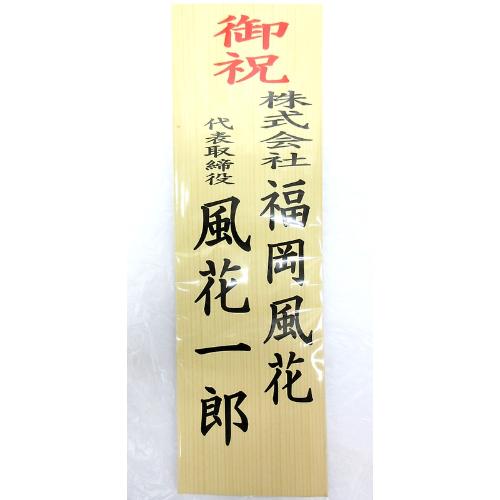 御祝
株式会社 福岡風花
代表取締役 風花一郎